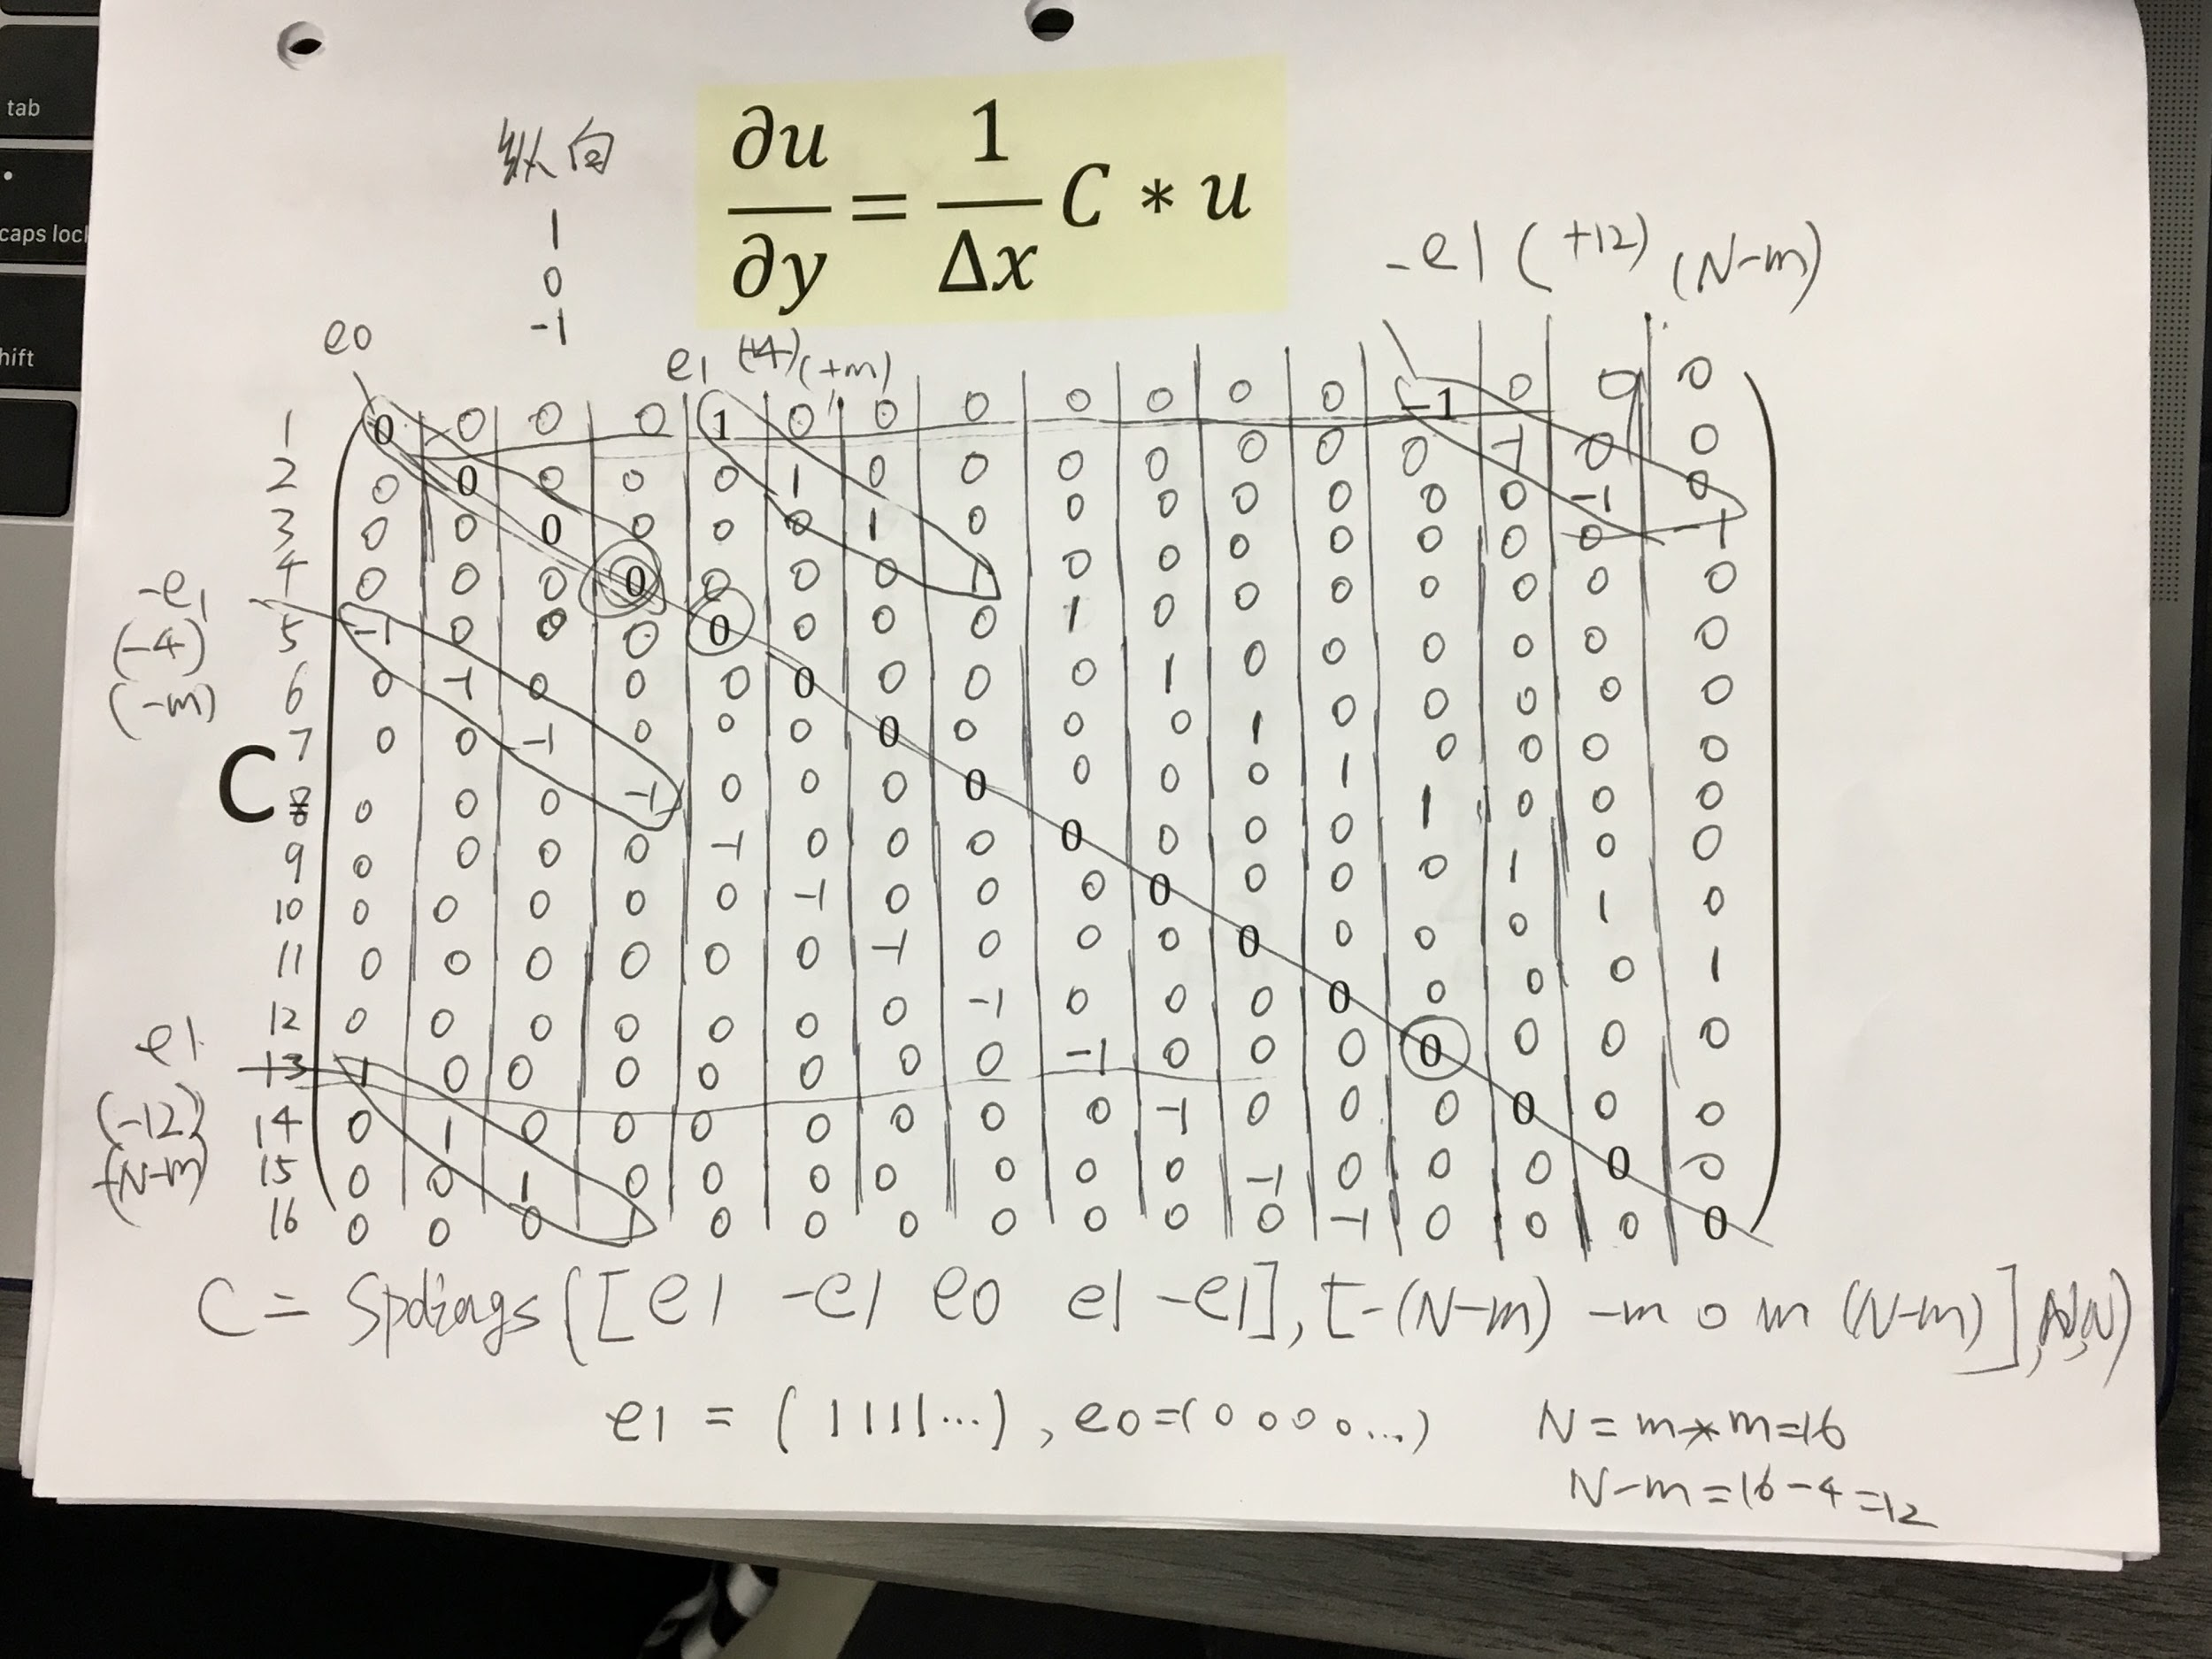 tab
caps loc
hift
纵向
1
0
-1
∂u/∂y = 1/Δx C * u
-e1 (+12) (N-m)
e0
e1 (+4) (+m)
1 0 0 0 0 1 0 0 0 0 0 0 0 -1 0 0 0
2 0 0 0 0 0 1 0 0 0 0 0 0 0 -1 0 0
3 0 0 0 0 0 0 1 0 0 0 0 0 0 0 -1 0
4 0 0 0 0 0 0 0 1 0 0 0 0 0 0 0 -1
-e1
(-4)
(-m)
5 -1 0 0 0 0 0 0 0 1 0 0 0 0 0 0 0
6 0 -1 0 0 0 0 0 0 0 1 0 0 0 0 0 0
7 0 0 -1 0 0 0 0 0 0 0 1 0 0 0 0 0
C
8 0 0 0 -1 0 0 0 0 0 0 0 1 0 0 0 0
9 0 0 0 0 -1 0 0 0 0 0 0 0 1 0 0 0
10 0 0 0 0 0 -1 0 0 0 0 0 0 0 1 0 0
11 0 0 0 0 0 0 -1 0 0 0 0 0 0 0 1 0
12 0 0 0 0 0 0 0 -1 0 0 0 0 0 0 0 1
e1
(-12)
-(N-m)
13 1 0 0 0 0 0 0 0 -1 0 0 0 0 0 0 0
14 0 1 0 0 0 0 0 0 0 -1 0 0 0 0 0 0
15 0 0 1 0 0 0 0 0 0 0 -1 0 0 0 0 0
16 0 0 0 1 0 0 0 0 0 0 0 -1 0 0 0 0
C = Spdiags([e1 -e1 e0 e1 -e1], [-(N-m) -m 0 m (N-m)], N,N)
e1 = (1111...), e0=(0000...) N=m*m=16
N-m=16-4=12